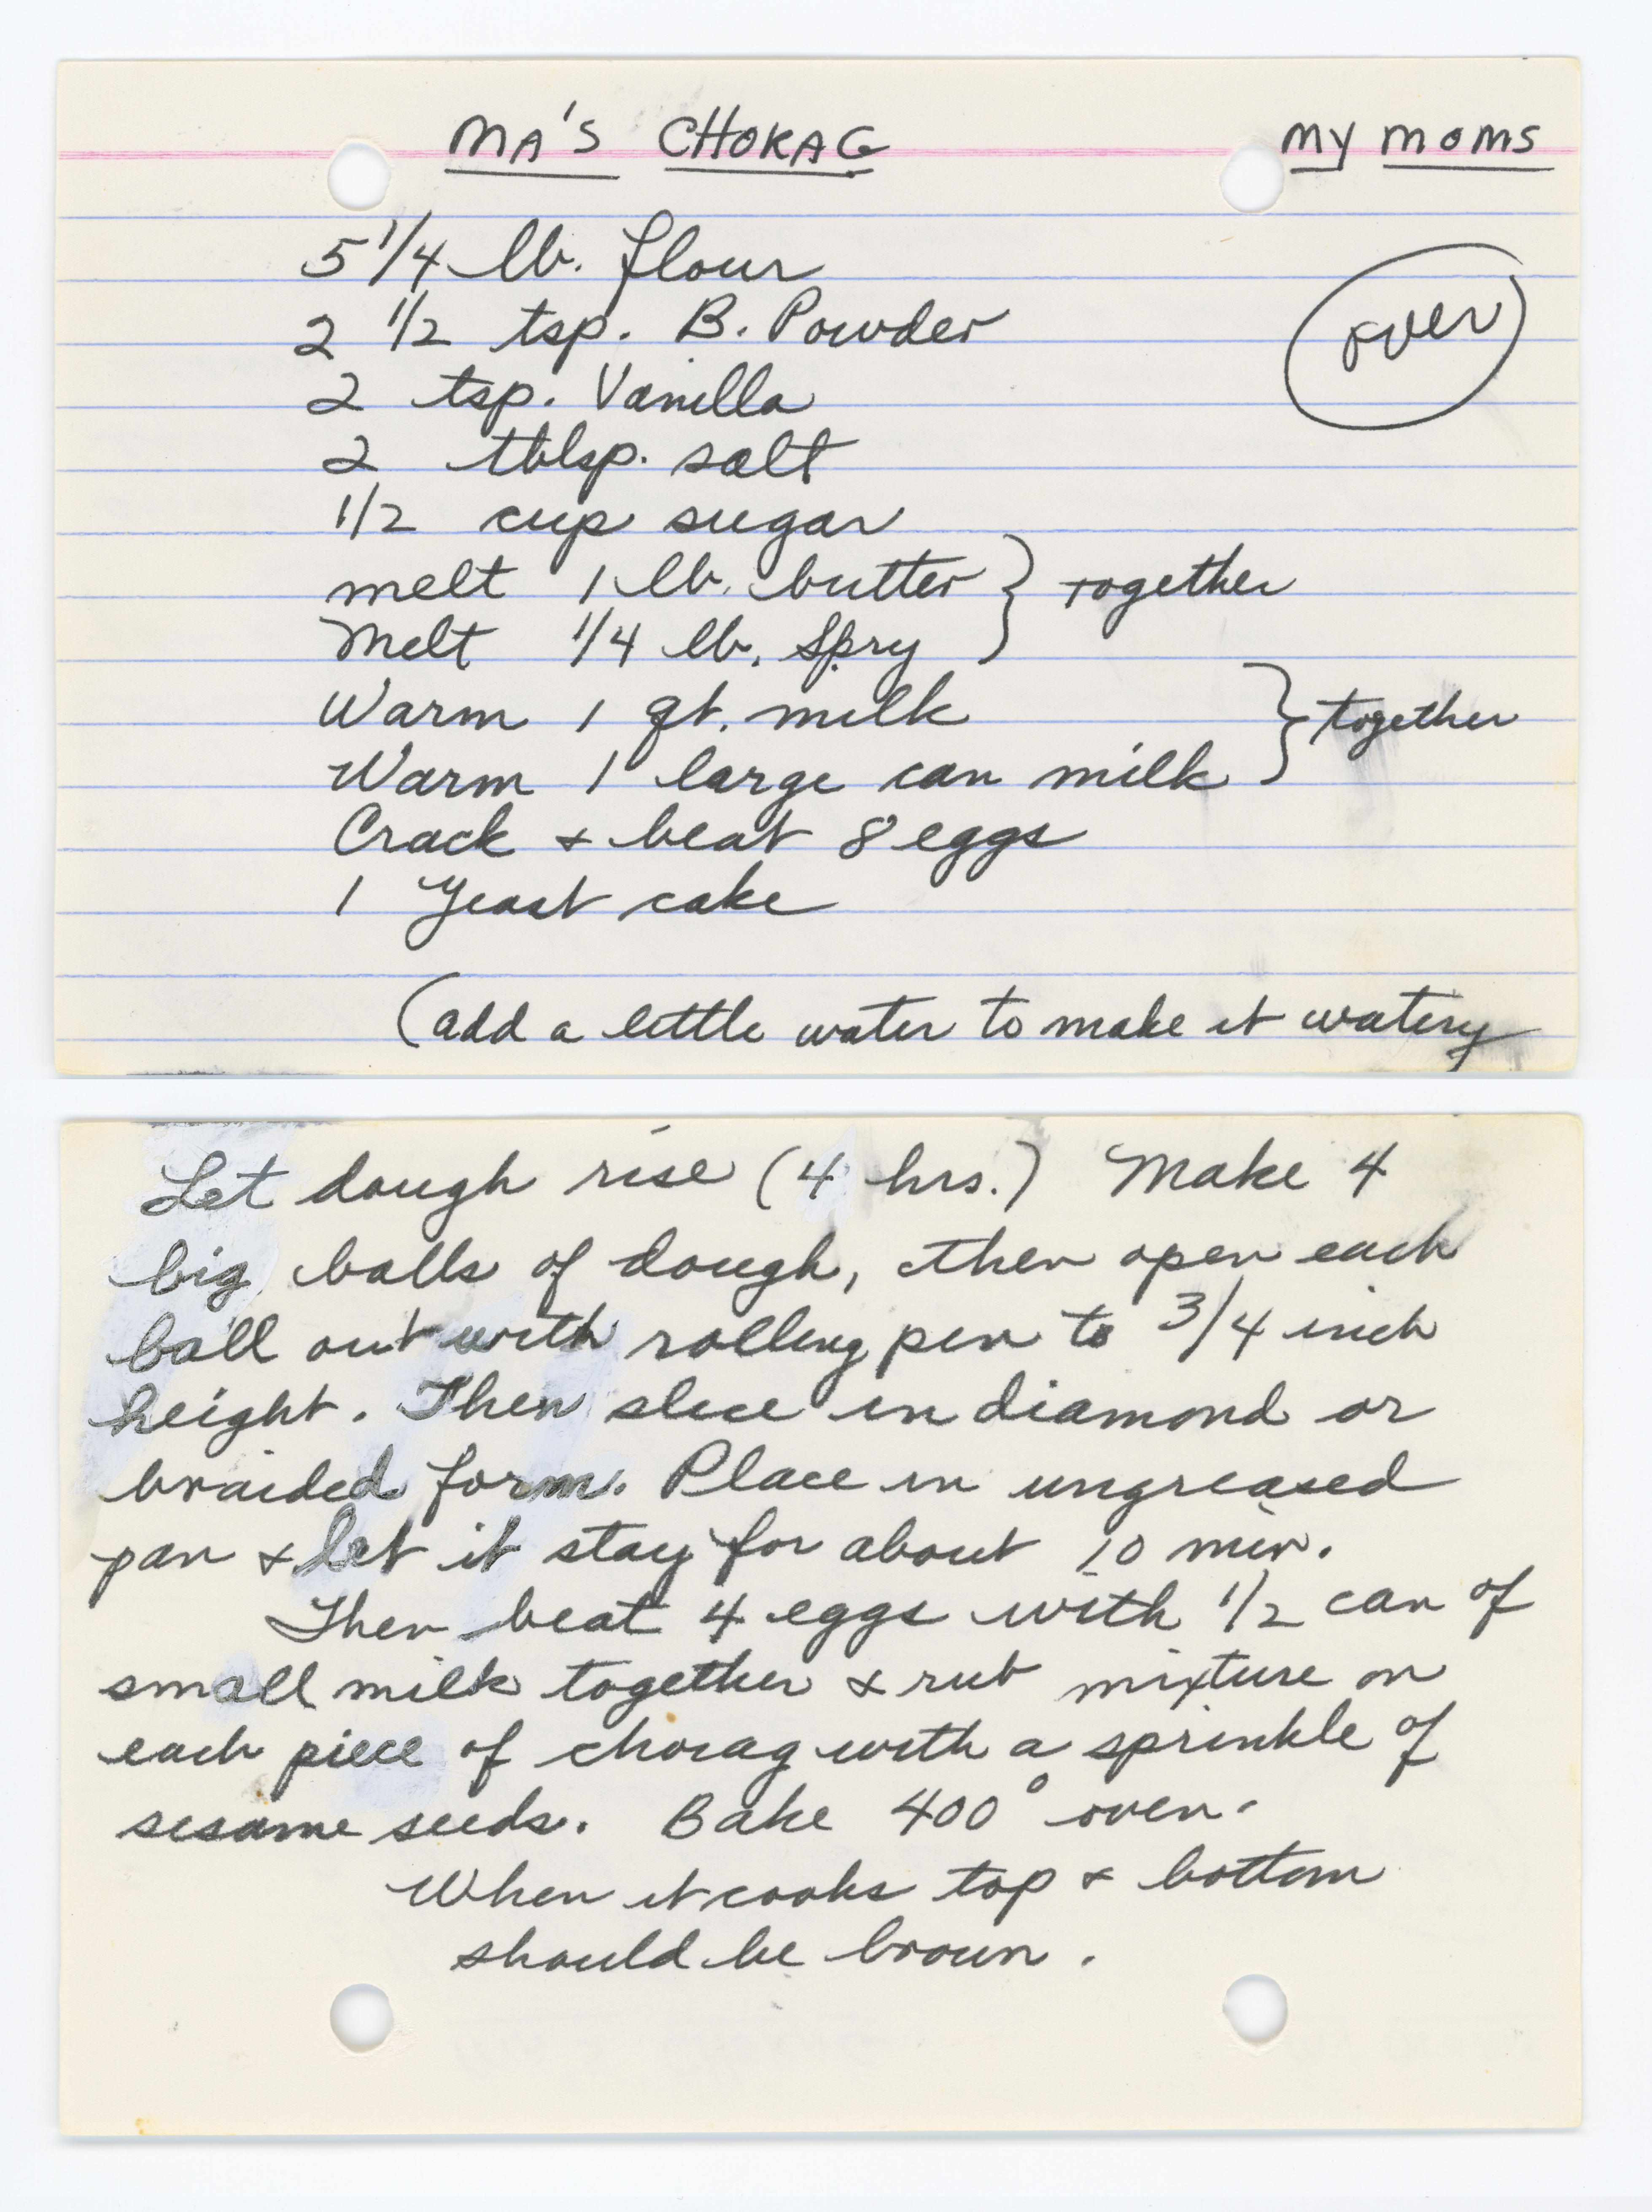 MA'S CHORAG
MY MOMS
5 1/4 lb. flour
over
2 1/2 tsp. B. Powder
2 tsp. Vanilla
2 tblsp. salt
1/2 cup sugar
melt 1 lb. butter } together
Melt 1/4 lb. Spry
Warm 1 qt. milk } together
Warm 1 large can milk
Crack & beat 8 eggs
1 Yeast cake
(add a little water to make it watery
Let dough rise (4 hrs.) Make 4
big balls of dough, then open each
ball out with rolling pin to 3/4 inch
height. Then slice in diamond or
braided form. Place in ungreased
pan & let it stay for about 10 min.
Then beat 4 eggs with 1/2 can of
small milk together & rub mixture on
each piece of chorag with a sprinkle of
sesame seeds. Bake 400° oven.
When it cooks top & bottom
should be brown.